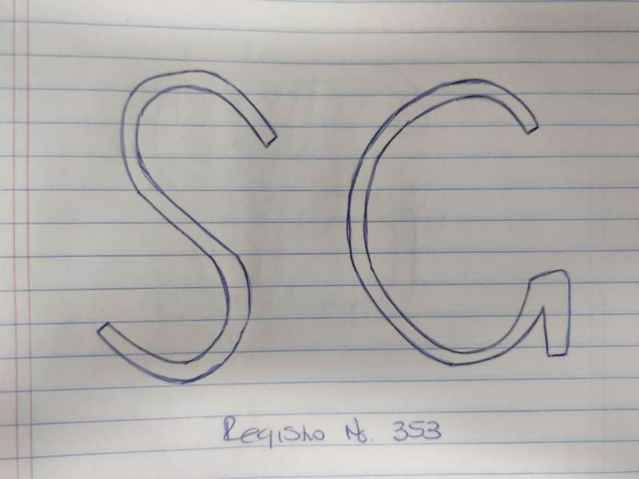 SG
Registro No. 353